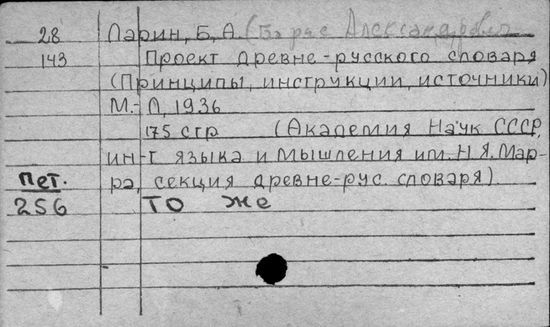 28 Ларин, Б. А. (Борис Александрович
143 Проект древне-русского словаря
(Принципы, инструкции, источники)
М.-Л, 1936
175 стр (Академия Наук СССР,
ин-т языка и мышления им. Н.Я. Мар-
Пет. ра, секция древне-рус. словаря).
256 то же